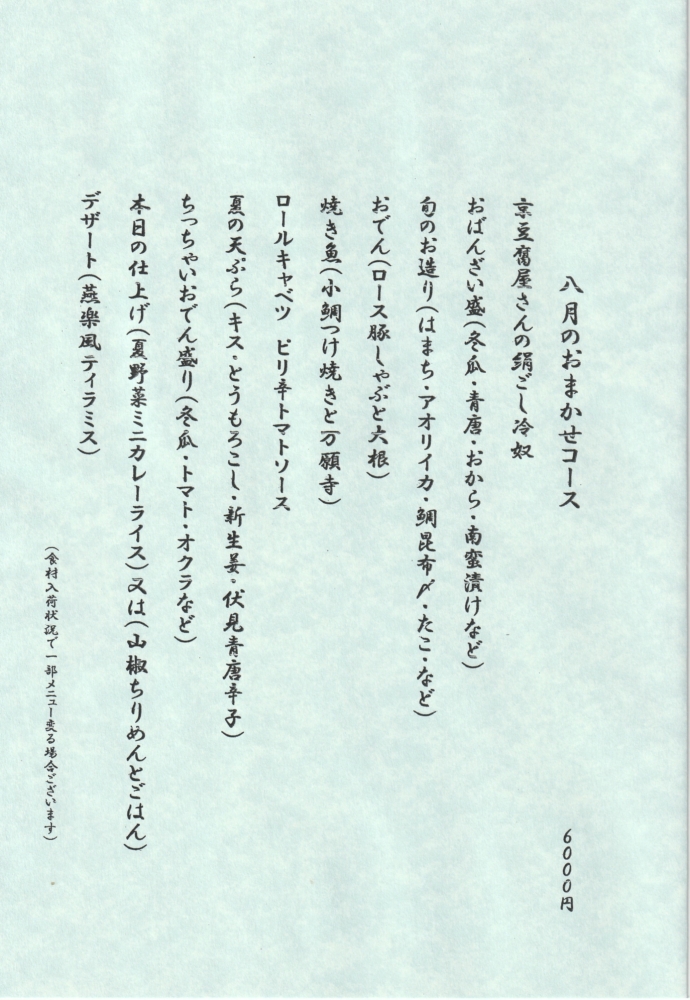 八月のおまかせコース 6000円
京豆腐屋さんの絹ごし冷奴
おばんざい盛(冬瓜・青唐・おから・南蛮漬けなど)
旬のお造り(はまち・アオリイカ・鯛昆布〆・たこ・など)
おでん(ロース豚しゃぶと大根)
焼き魚(小鯛つけ焼きと万願寺)
ロールキャベツ ピリ辛トマトソース
夏の天ぷら(キス・とうもろこし・新生姜・伏見青唐辛子)
ちっちゃいおでん盛り(冬瓜・トマト・オクラなど)
本日の仕上げ(夏野菜ミニカレーライス)又は(山椒ちりめんとごはん)
デザート(燕楽風ティラミス)
(食材入荷状況で一部メニュー変る場合ございます)